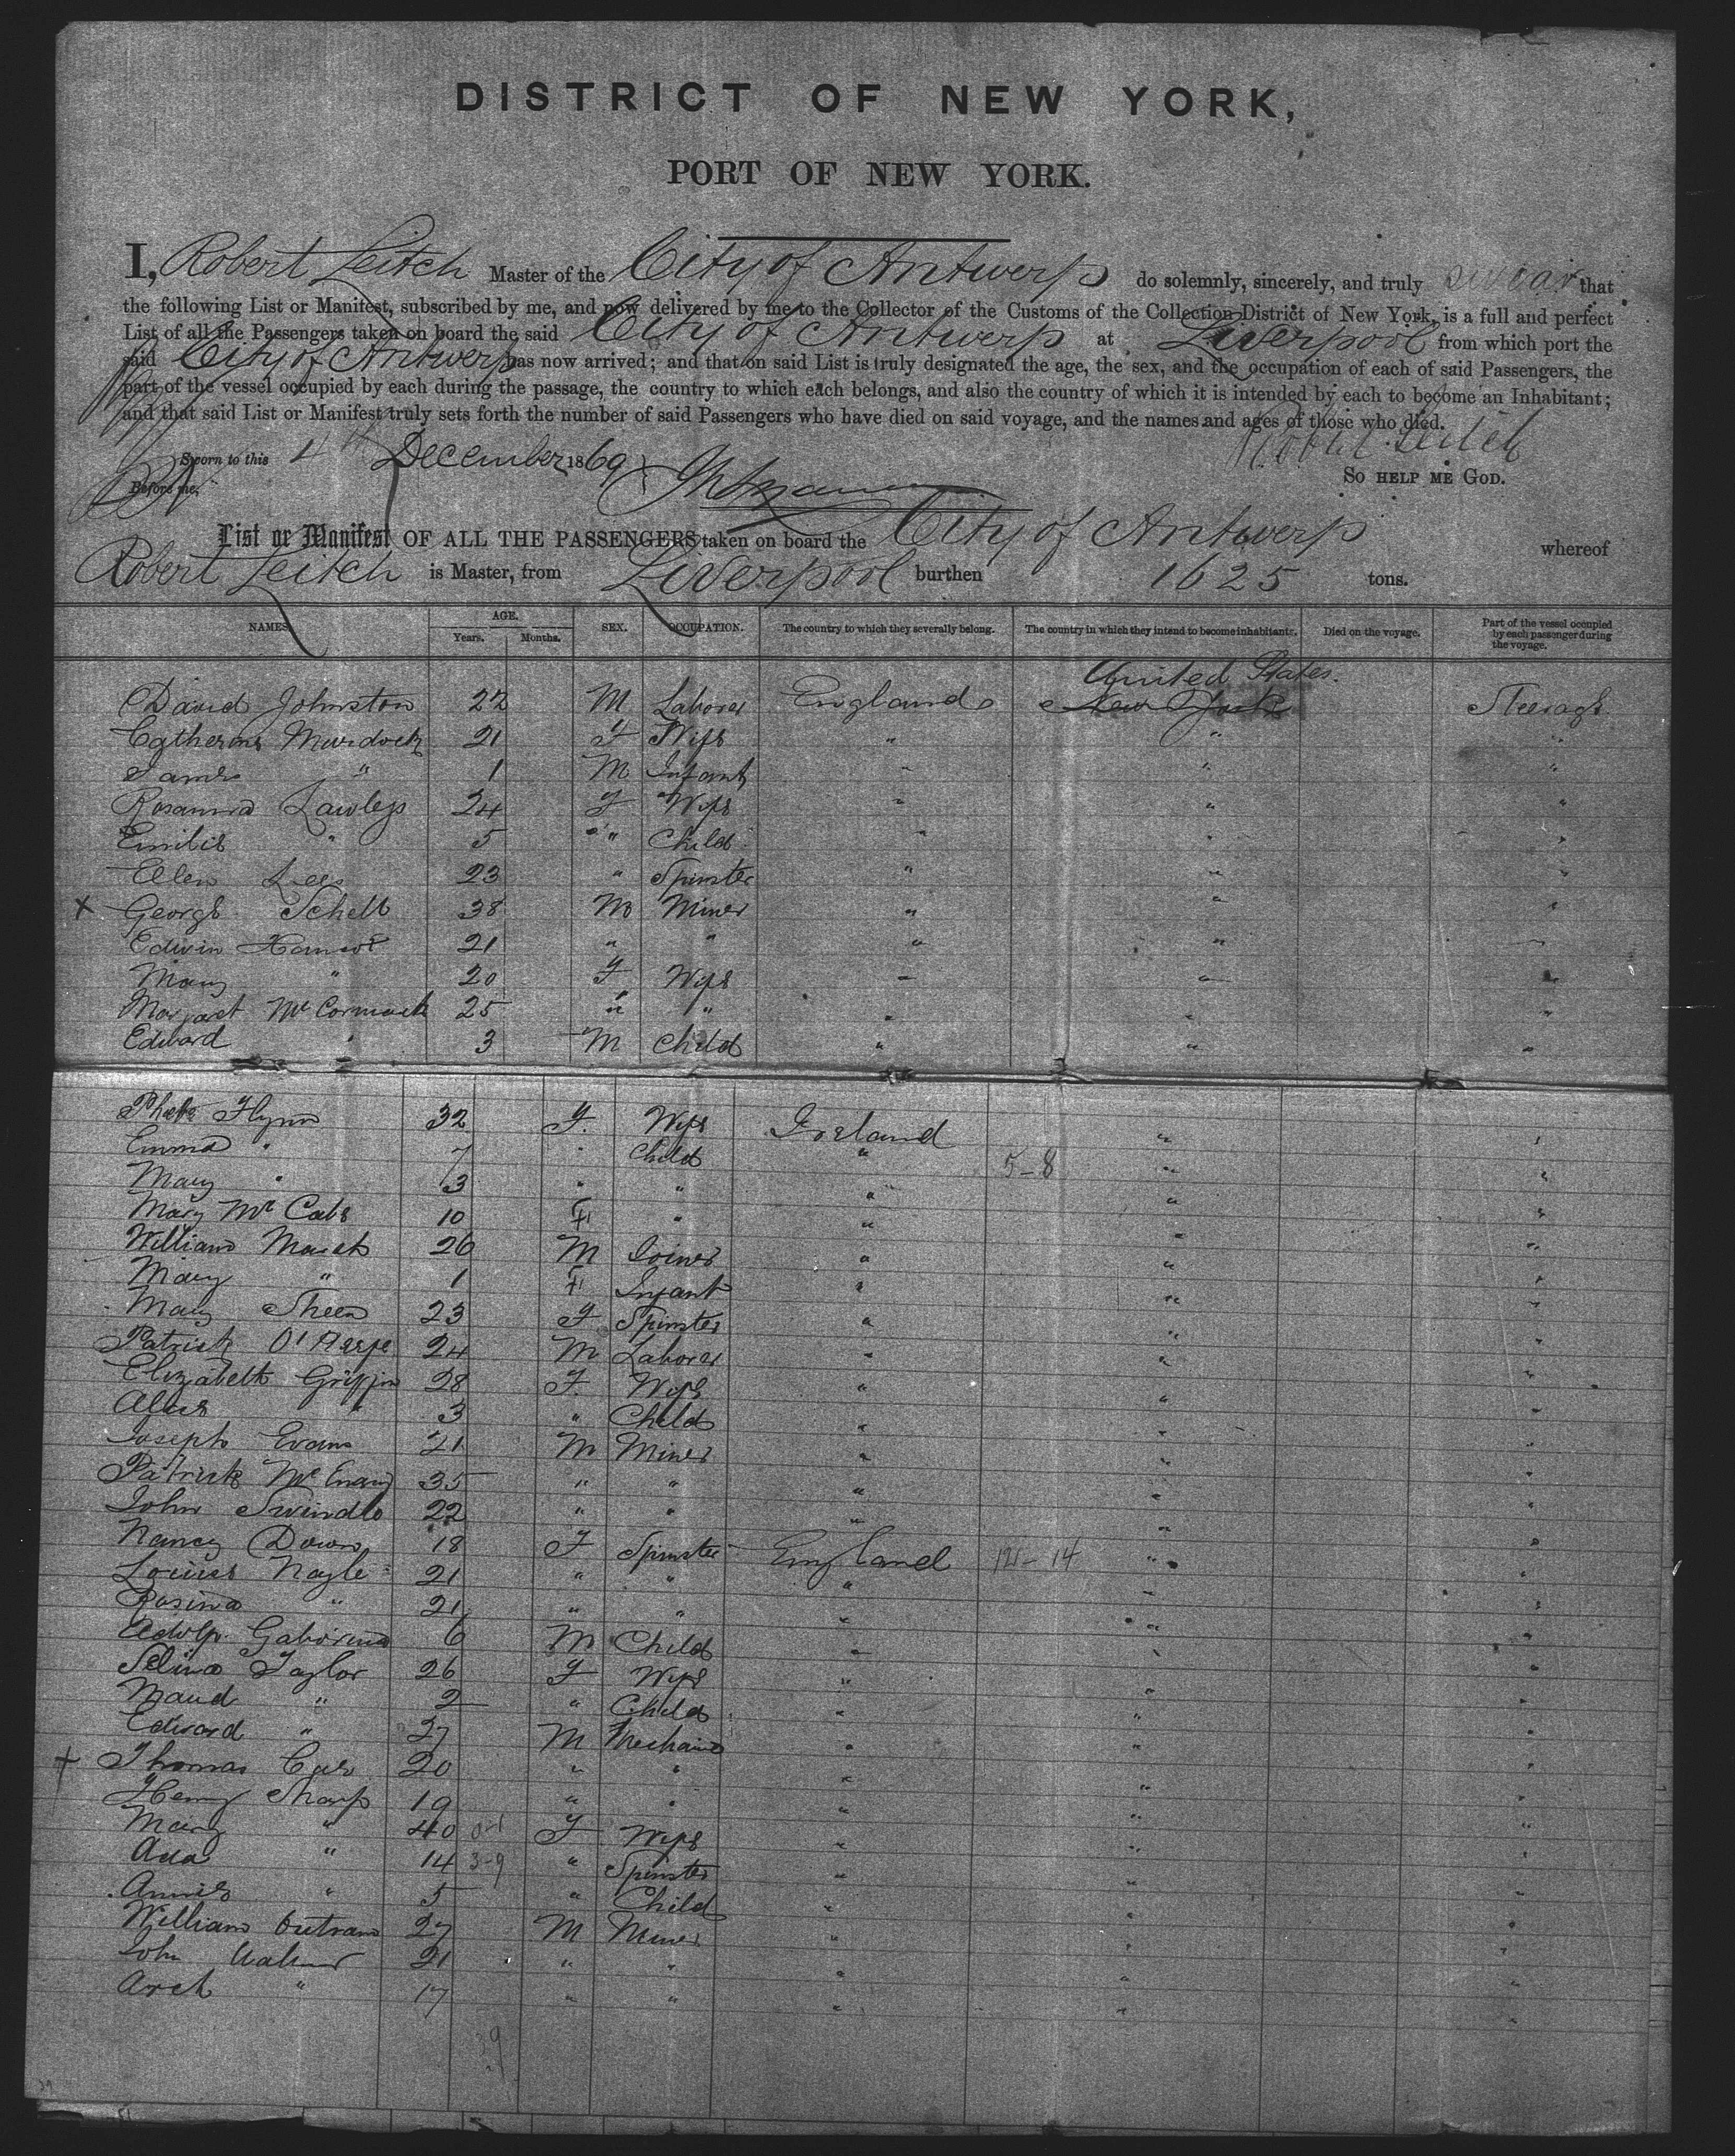 DISTRICT OF NEW YORK,
PORT OF NEW YORK.
I, Robert Leitch Master of the City of Antwerp do solemnly, sincerely, and truly swear that
the following List or Manifest, subscribed by me, and now delivered by me to the Collector of the Customs of the Collection District of New York, is a full and perfect
List of all the Passengers taken on board the said City of Antwerp at Liverpool from which port the
said City of Antwerp has now arrived; and that on said List is truly designated the age, the sex, and the occupation of each of said Passengers, the
part of the vessel occupied by each during the passage, the country to which each belongs, and also the country of which it is intended by each to become an Inhabitant;
and that said List or Manifest truly sets forth the number of said Passengers who have died on said voyage, and the names and ages of those who died.
Robert Leitch
Sworn to this 4th December 1869
SO HELP ME GOD.
Before me,
List or Manifest OF ALL THE PASSENGERS taken on board the City of Antwerp whereof
Robert Leitch is Master, from Liverpool burthen 1625 tons.
NAMES. AGE. Years. Months. SEX. OCCUPATION. The country to which they severally belong. The country in which they intend to become inhabitants. Died on the voyage. Part of the vessel occupied by each passenger during the voyage.
United States.
David Johnston 22 M Laborer England New York Steerage
Catherine Murdock 21 F Wife " " "
James " 1 M Infant " " "
Rosanna Lawless 24 F Wife " " "
Emilie " 5 " Child " " "
Ellen Lees 23 " Spinster " " "
x George Schell 38 M Miner " " "
Edwin 21 " " " " "
Mary " 20 F Wife " " "
Margaret McCormack 25 " " " " "
Edward " 3 M Child " " "
Phebe Flynn 32 F. Wife Ireland " "
Emma " 7 " Child " 5-8 " "
Mary " 3 " " " " "
Mary McCabe 10 F " " " "
William March 26 M Joiner " " "
Mary " 1 F Infant " " "
Mary Sheen 23 F Spinster " " "
Patrick 24 M Laborer " " "
Elizabeth Griffin 28 F. Wife " " "
Alice " 3 " Child " " "
Joseph Evans 21 M Miner " " "
Patrick 35 " " " " "
John Swindle 22 " " " " "
Nancy Down 18 F Spinster England 12-14 " "
Louisa Nagle 21 " " " " "
Rosina " 21 " " " " "
Adolp. 6 M Child " " "
Selina Taylor 26 F Wife " " "
Maud " 2 " Child " " "
Edward " 27 M Mechanic " " "
+ Thomas 20 " " " " "
Henry Sharp 19 " " " " "
Mary " 40 0-1 F Wife " " "
Ada " 14 3-9 " Spinster " " "
Annie " 5 " Child " " "
William Outram 27 M Miner " " "
John 21 " " " " "
Arch " 17 " " " " "
39